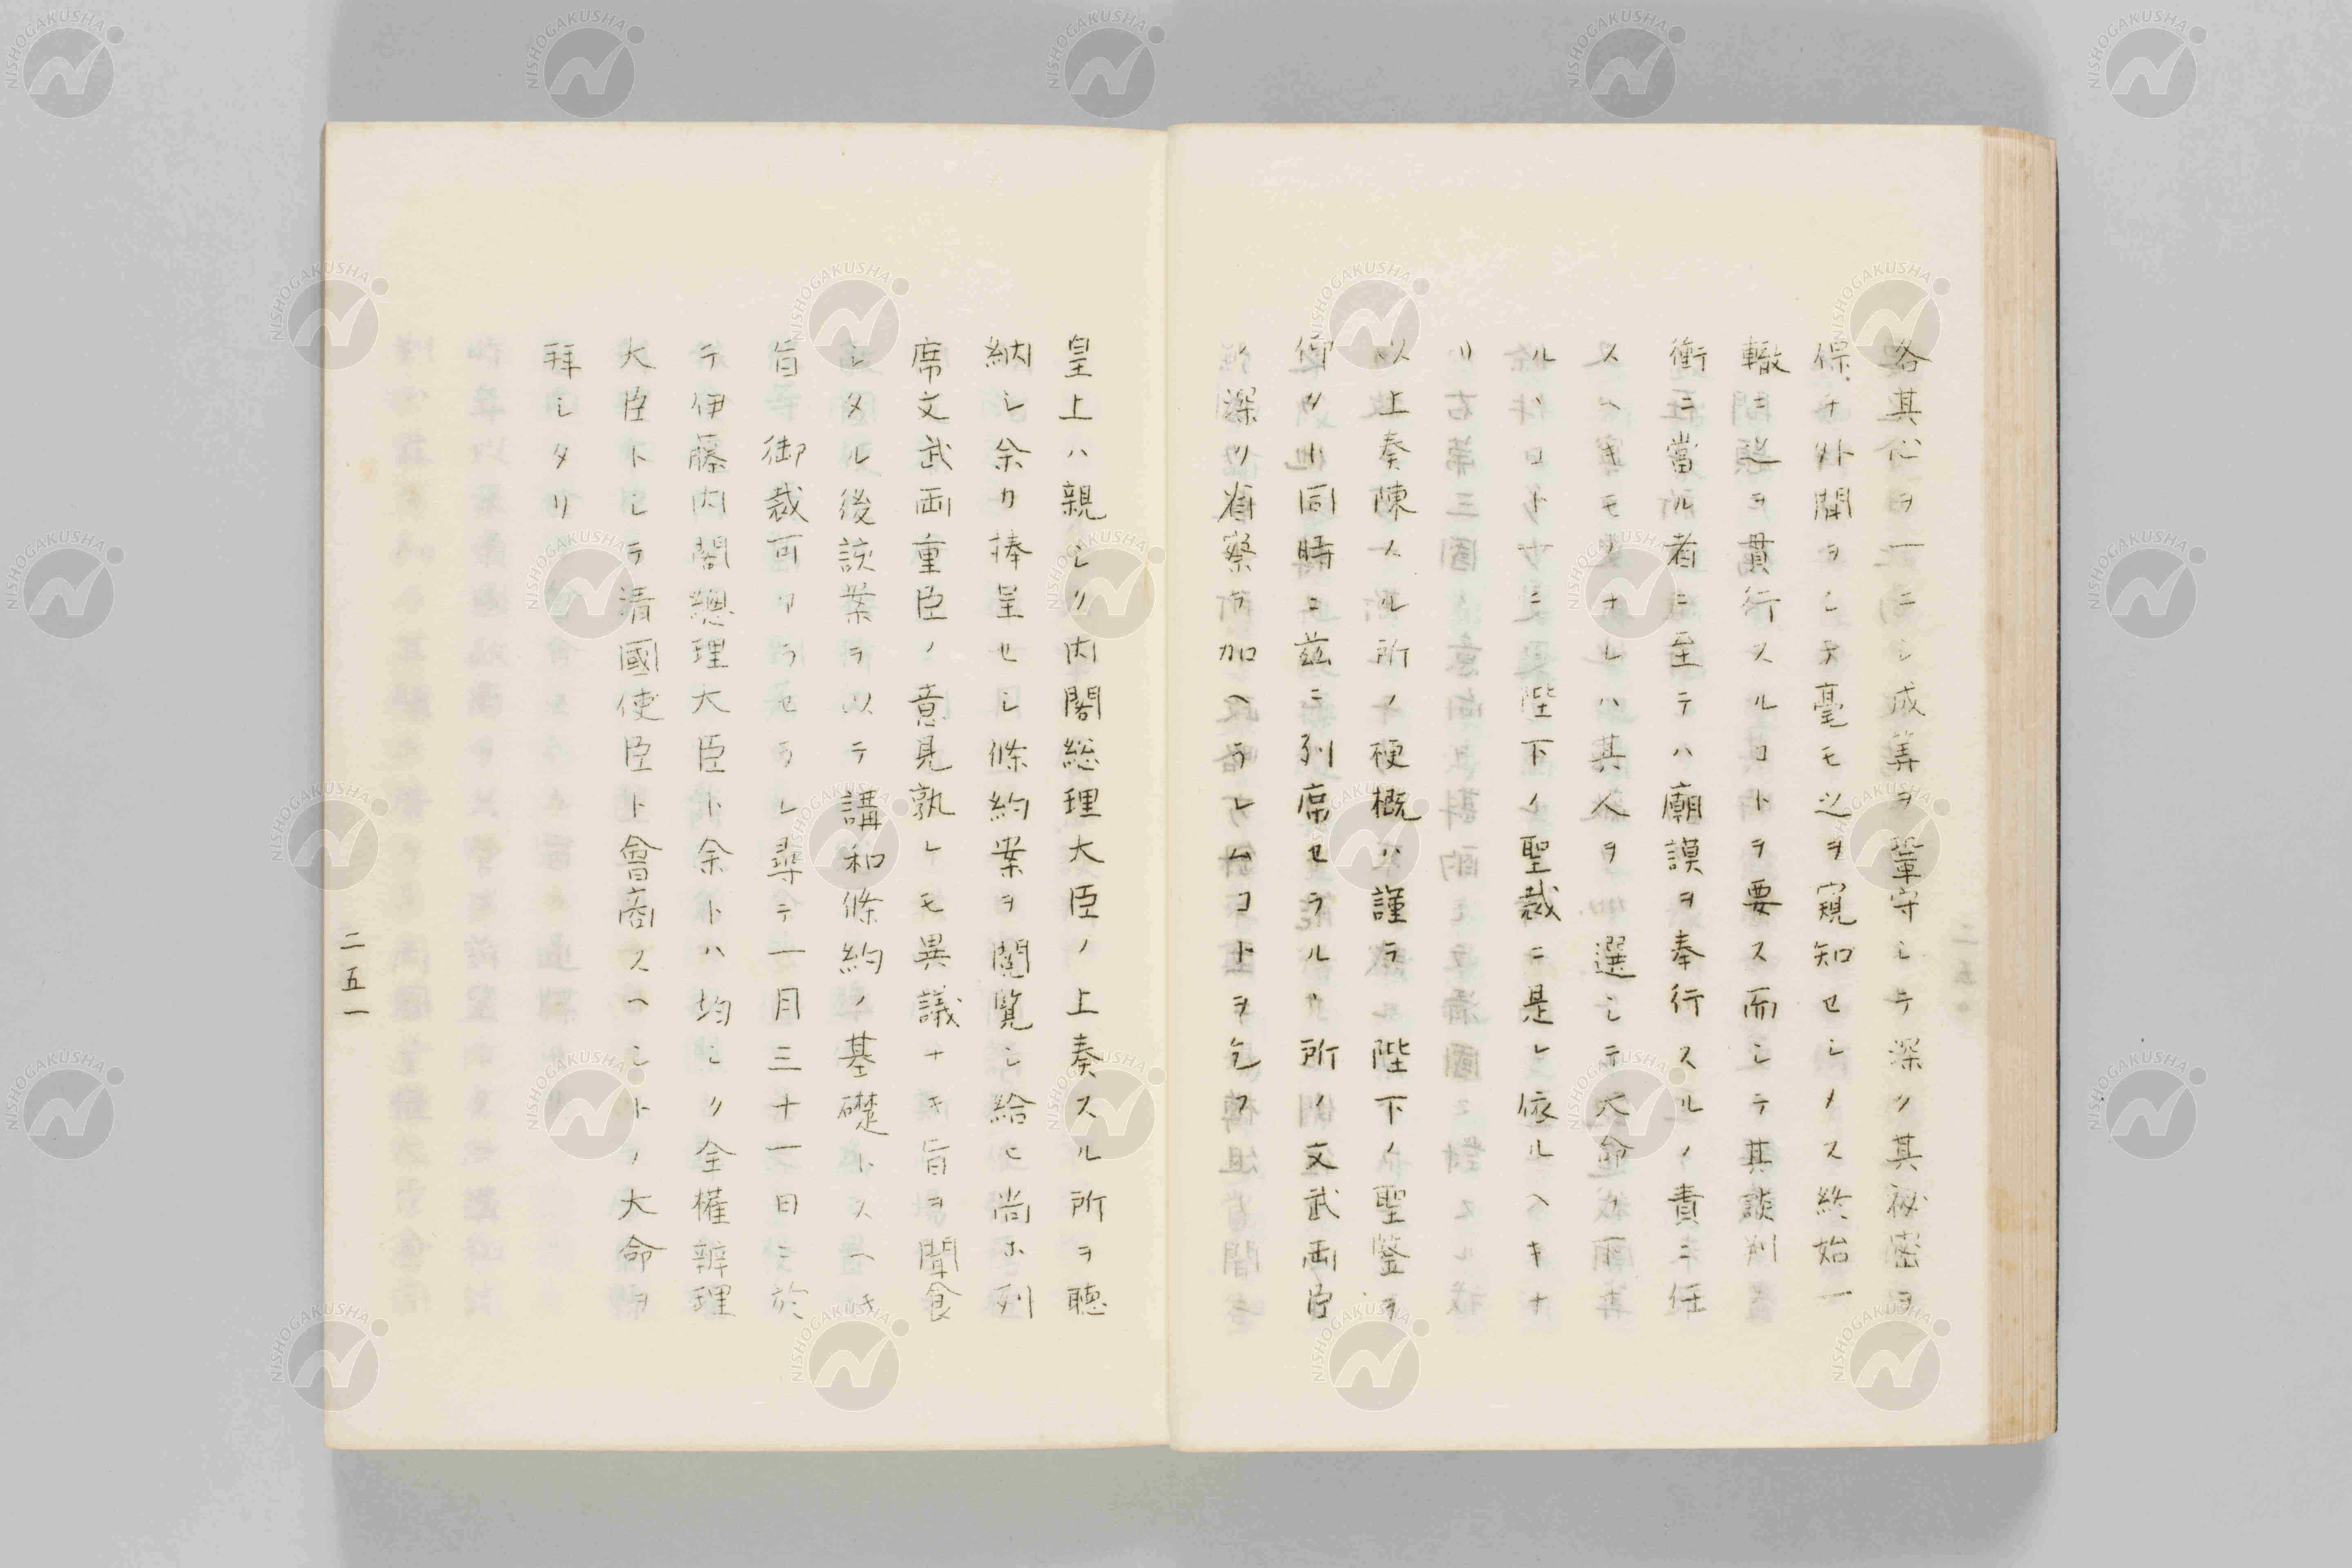 各其心ヲ一ニシ成筭ヲ鞏守シテ深ク其祕密ヲ
保チ外間ヲシテ毫モ之ヲ窺知セシメス終始一
轍ヲ以テ貫行スルコトヲ要ス而シテ其談判
衝ニ當ル者ニ至テハ廟謨ヲ奉行スルノ責ニ任
スヘキモノナレハ其人ヲ選シテ大命ヲ下
ルハコト一ニ陛下ノ聖裁ニ是レ依ルヘキナ
リ
以上奏陳スル所ノ梗概ハ謹テ陛下ノ聖鑒ヲ
仰クト同時ニ茲ニ列席セラルヽ所ノ文武両臣
ノ深ク省察ヲ加ヘラレムコトヲ乞フ
皇上ハ親シク内閣総理大臣ノ上奏スル所ヲ聴
納シ余カ捧呈セシ條約案ヲ閲覧シ給ヒ尚ホ列
席文武両重臣ノ意見孰レモ異議ナキ旨ヲ聞食
シタル後該案ヲ以テ講和條約ノ基礎トスヘキ
旨御裁可アラセラレ尋テ一月三十一日ニ於
テ伊藤内閣總理大臣ト余トハ均シク全權辨理
大臣トシテ清國使臣ト會商スヘシトノ大命ヲ
拜シタリ
二五一
NISHOGAKUSHA